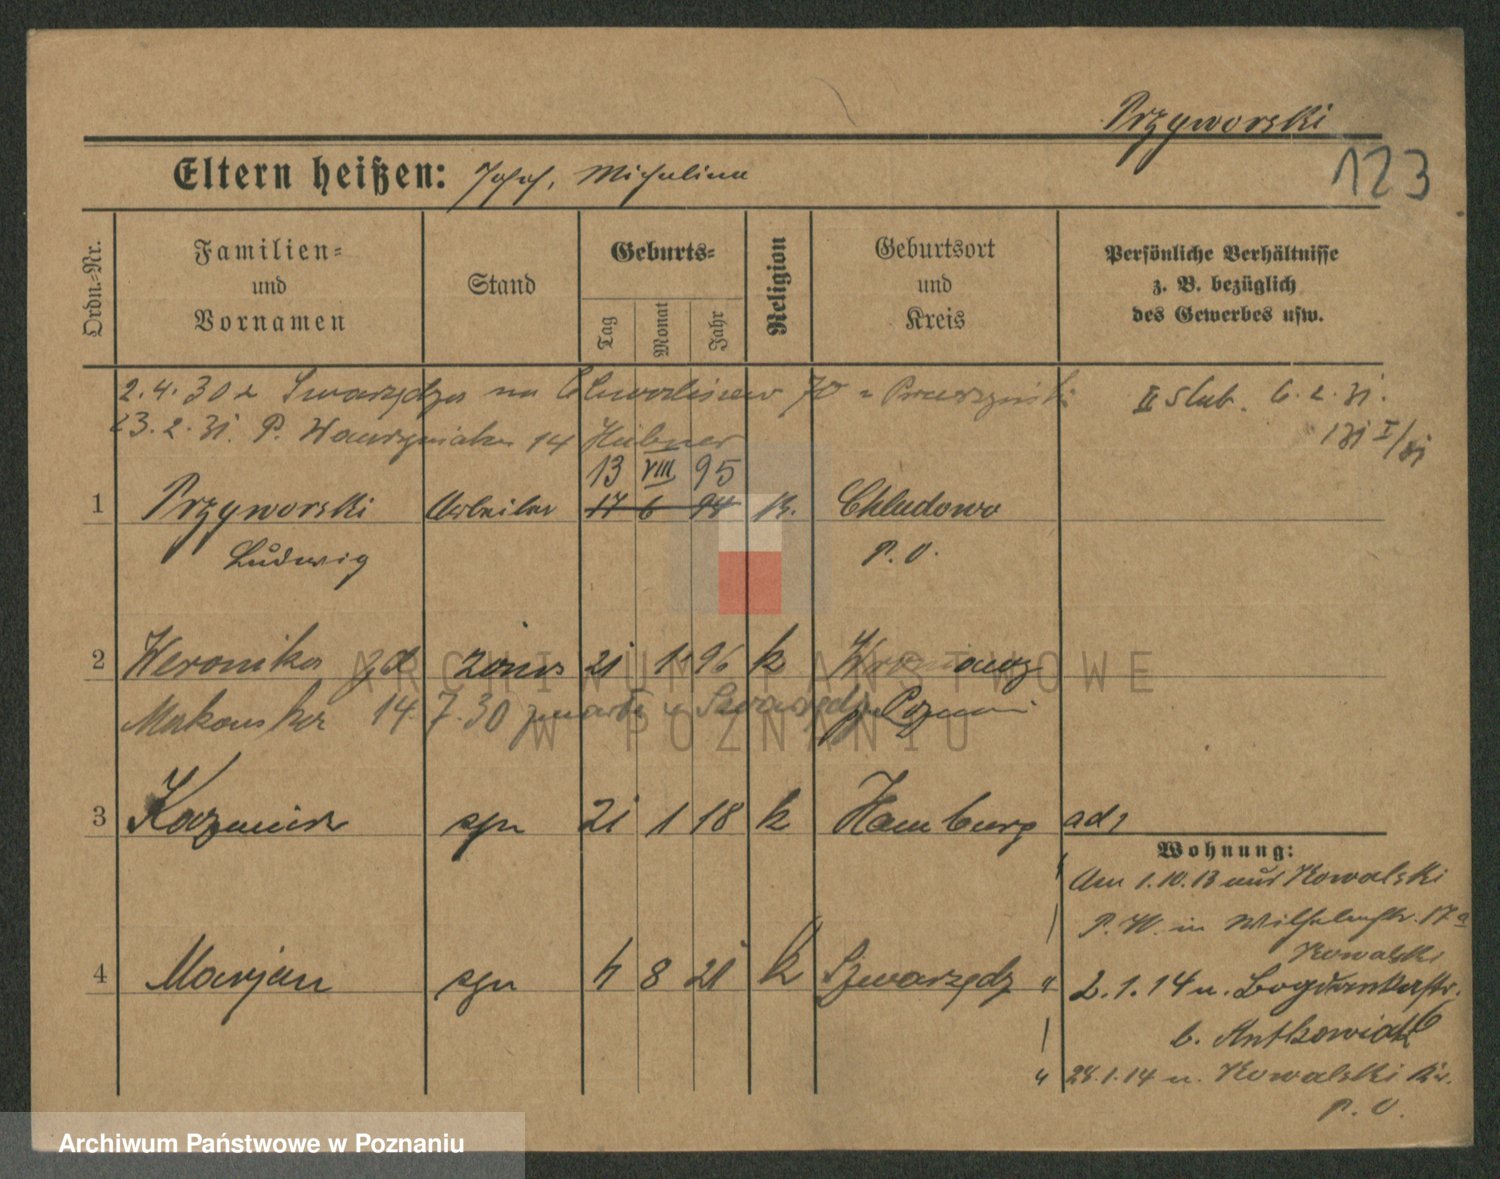 Przyworski
123
Eltern heißen: Josef, Michalina
Ordn.-Nr.
Familien- und Vornamen
Stand
Geburts-
Tag
Monat
Jahr
Religion
Geburtsort und Kreis
Persönliche Verhältnisse z. B. bezüglich des Gewerbes usw.
2.4.30 z Swarzędza na 70
II Slub. 6.2.31.
23.2.31. P. Wawrzyniaka 14 Hübner
13 VIII 95
1 Przyworski Arbeiter 17 6 94 k. Chludowo
Ludwig P. O.
2 Weronika zd żona 21 1 96 k
Makowska 14.7.30 zmarła w
3 Kazmier syn 21 1 18 k Hamburg
Wohnung:
Am 1.10.13 aus Kowalski
P. W. in Wilhelmstr. 17a
Kowalski
4 Marjan syn 4 8 21 k Swarzędz
" 2.1.14 n. Bogdankastr. 6
b. Antkowiak
" 28.1.14 n. Kowalski
P. O.
ARCHIWUM PAŃSTWOWE
W POZNANIU
Archiwum Państwowe w Poznaniu